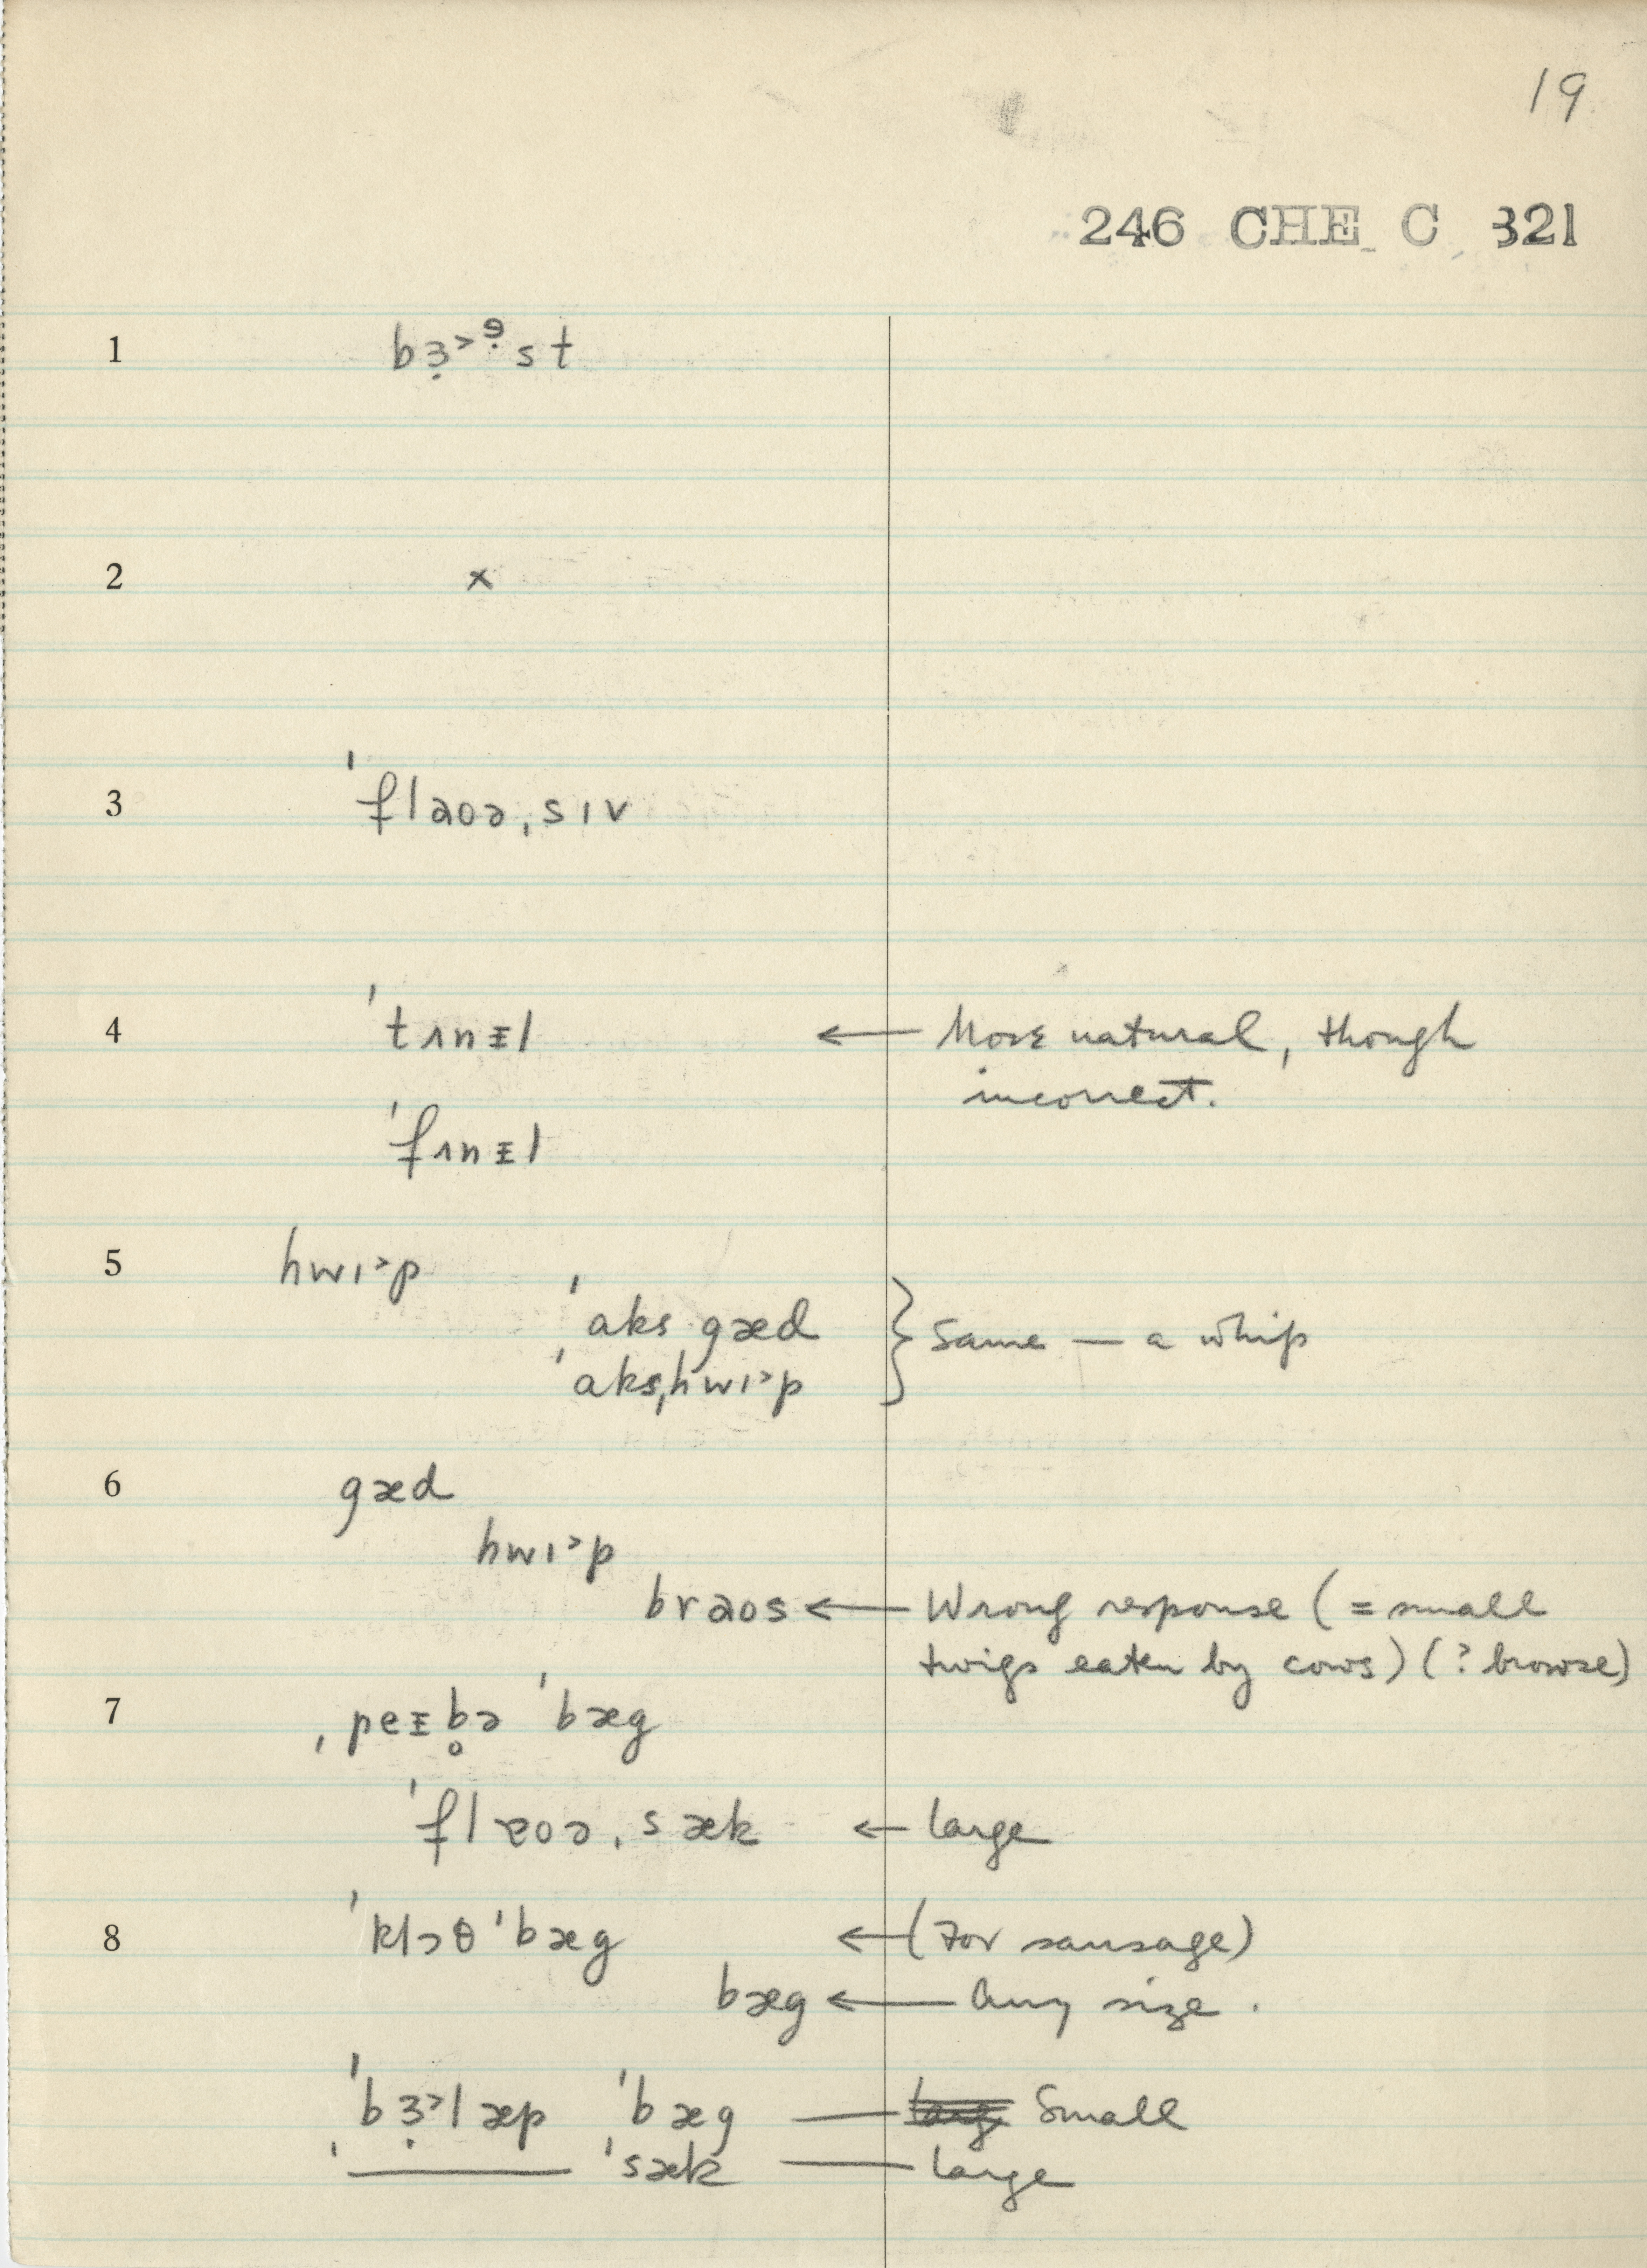 19
246 CHE C 321
1 bɜ̣˃ᵊ̣st
2 x
3 ˈflaʊə,sɪv
4 ˈtʌnɪ̵l ← More natural, though
incorrect.
ˈfʌnɪ̵l
5 hwɪ˃p
ˈaks gæd } Same — a whip
ˈaks,hwɪ˃p
6 gæd
hwɪ˃p
braos ← Wrong response (= small
twigs eaten by cows) (? browse)
7 ˌpeɪ̵b̥ə ˈbæg
ˈflɐoə,sæk ← large
8 ˈklɔθˈbæg ← (For sausage)
bæg ← Any size.
ˈbɜ̣˃læp ˈbæg — Small
ˈ____ ˈsæk — large